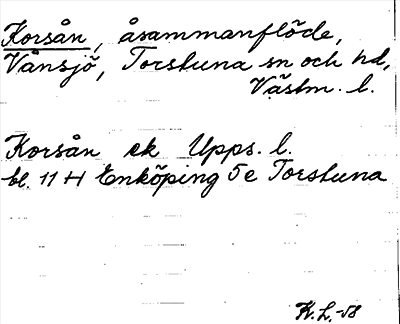 Korsån, åsammanflöde,
Vånsjö, Torstuna sn och hd,
Västm. l.
Korsån ek Upps. l.
bl. 11 H Enköping 5e Torstuna
K.L.-58